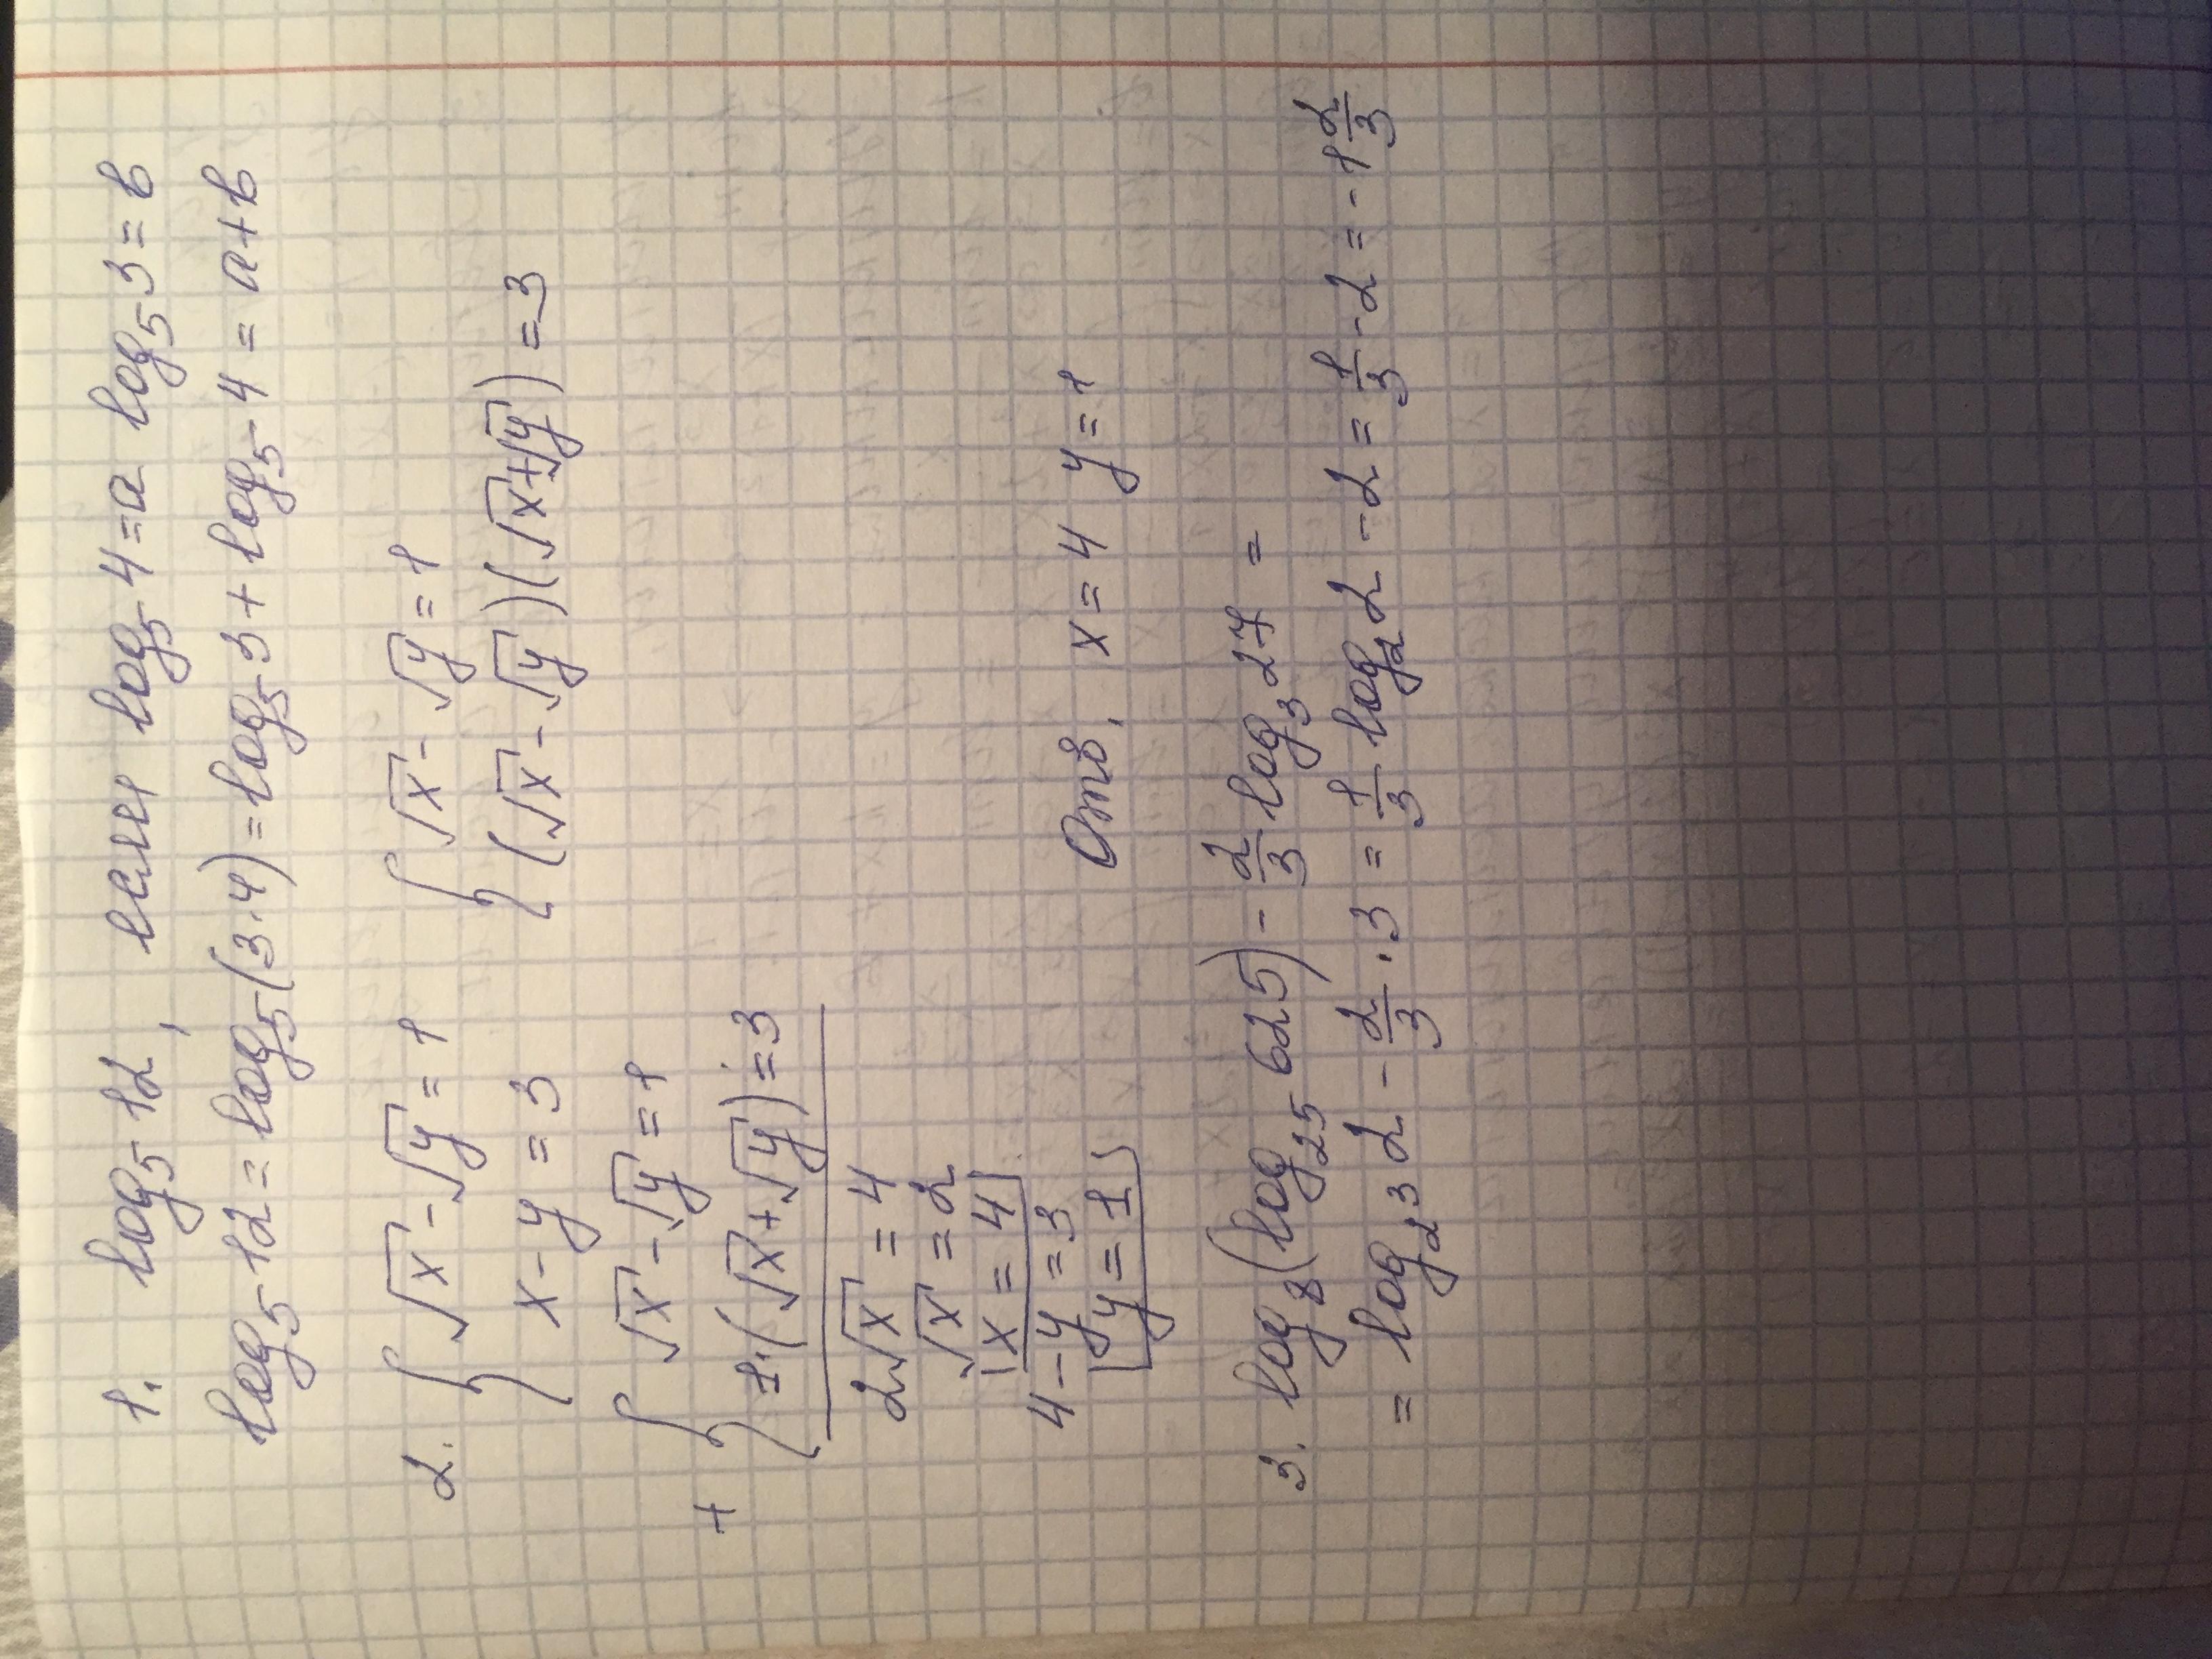 1. log₅12, если log₅4=a log₅3=b
log₅12=log₅(3·4)=log₅3+log₅4=a+b
2. { √x-√y=1 { √x-√y=1
x-y=3 (√x-√y)(√x+√y)=3
+ { √x-√y=1
1·(√x+√y)=3
2√x=4
√x=2
x=4
4-y=3
y=1
Отв. x=4 y=1
3. log₈(log₂₅625)-2/3 log₃27=
=log₂³2-2/3·3=1/3 log₂2-2=1/3-2=-1 2/3